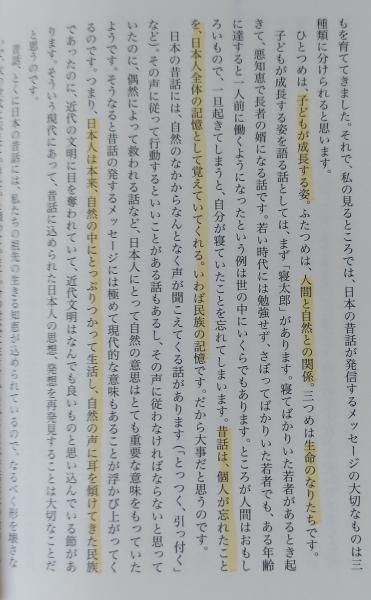 もを育ててきました。それで、私の見るところでは、日本の昔話が発信するメッセージの大切なものは三
種類に分けられると思います。
ひとつめは、子どもが成長する姿。ふたつめは、人間と自然との関係。三つめは生命のなりたちです。
子どもが成長する姿を語る話としては、まず「寝太郎」があります。寝てばかりいた若者があるとき起
きて、悪知恵で長者の婿になる話です。若い時代には勉強せず、さぼってばかりいた若者でも、ある年齢
に達すると一人前に働くようになったという例は世の中にいくらでもあります。ところが人間はおもし
ろいもので、一旦起きてしまうと、自分が寝ていたことを忘れてしまいます。昔話は、個人が忘れたこと
を、日本人全体の記憶として覚えていてくれる。いわば民族の記憶です。だから大事だと思うのです。
日本の昔話には、自然のなかからなんとなく声が聞こえてくる話があります(「とっつく、引っ付く」
など)。その声に従って行動するといいことがある話もあるし、その声に従わなければならないと思って
いたのに、偶然によって救われる話など、日本人にとって自然の意思はとても重要な意味をもっていた
ようです。そうなると昔話の発するメッセージには極めて現代的な意味もあることが浮かび上がってく
るのです。つまり、日本人は本来、自然の中にとっぷりつかって生活し、自然の声に耳を傾けてきた民族
であったのに、近代の文明に目を奪われていて、近代文明はなんでも良いものと思い込んでいる節があ
ります。そういう現代にあって、昔話に込められた日本人の思想、発想を再発見することは大切なことだ
と思うのです。
昔話、とくに日本の昔話には、私たちの祖先の生きる知恵が込められているので、なるべく形を壊さな